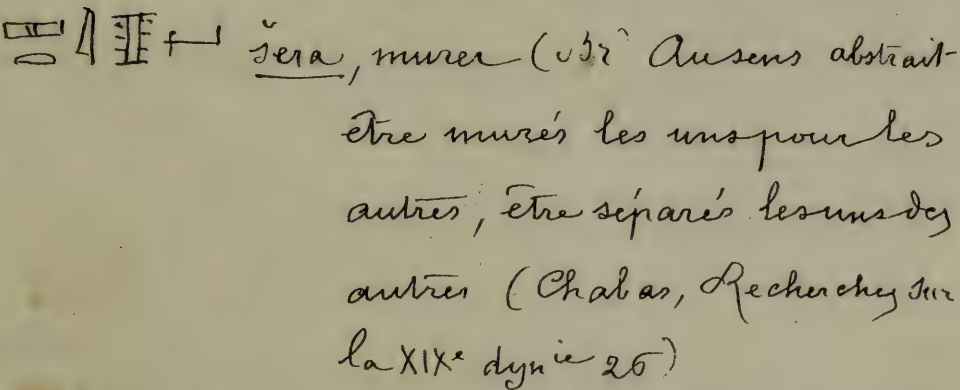 šera, murer ( Au sens abstrait-
être murés les uns pour les
autres, être séparés les uns des
autres (Chabas, Recherches sur
la XIXe dynie 26)